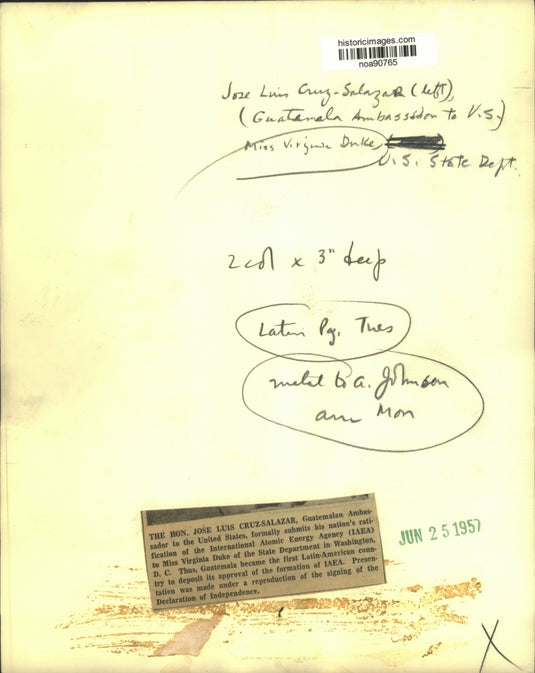 historicimages.com
noa90765
Jose Luis Cruz-Salazar (left),
(Guatemala Ambassador to U.S.)
Miss Virginia Duke,
U.S. State Dept.
2 col x 3" deep
Latin Pg. Tues
to A. Johnson
Mon
THE HON. JOSE LUIS CRUZ-SALAZAR, Guatemalan Ambas-
sador to the United States, formally submits his nation's rati-
fication of the International Atomic Energy Agency (IAEA)
to Miss Virginia Duke of the State Department in Washington,
D. C. Thus, Guatemala became the first Latin-American coun-
try to deposit its approval of the formation of IAEA. Presen-
tation was made under a reproduction of the signing of the
Declaration of Independence.
JUN 25 1957
X